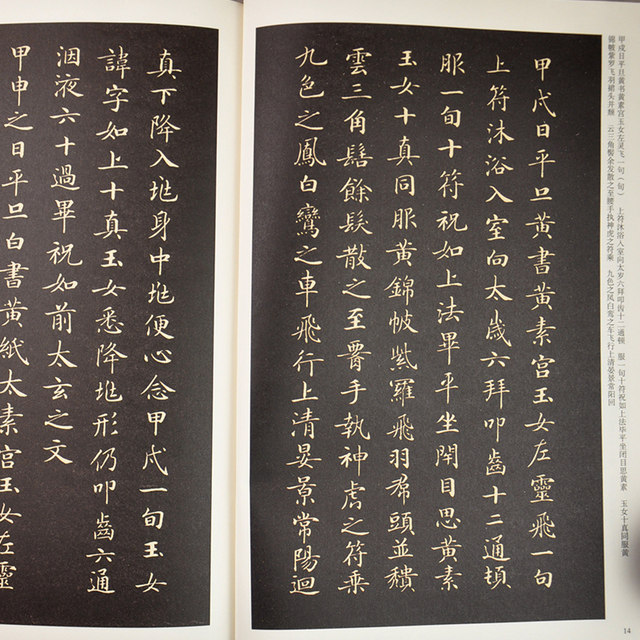 甲戌日平旦黄書黄素宫玉女左靈飛一旬
上符沐浴入室向太歲六拜叩齒十二通頓
服一旬十符祝如上法畢平坐閇目思黄素
玉女十真同服黄錦帔紫羅飛羽帬頭並穨
雲三角髻餘髮散之至𦝫手執神虎之符乗
九色之鳳白鸞之車飛行上清晏景常陽迴
真下降入𡉏身中𡉏便心念甲戌一旬玉女
諱字如上十真玉女悉降𡉏形仍叩齒六通
咽液六十過畢祝如前太玄之文
甲申之日平旦白書黄紙太素宫玉女左靈
甲戌日平旦黄书黄素宫玉女左灵飞一句（旬） 上符沐浴入室向太岁六拜叩齿十二通顿 服一旬十符祝如上法毕平坐闭目思黄素 玉女十真同服黄
锦帔紫罗飞羽裙头并颓 云三角髻余发散之至腰手执神虎之符乘 九色之凤白鸾之车飞行上清晏景常阳回
14